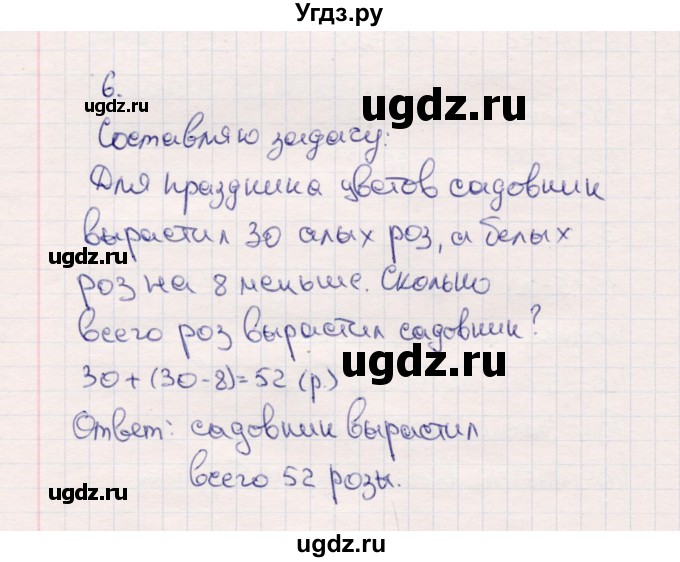 Угдз.ру
6.
ugdz.ru
ugdz.ru
Составляю задачу:
Для праздника цветов садовник
вырастил 30 алых роз, а белых
ugdz.ru
роз на 8 меньше. Сколько
всего роз вырастил садовник?
30+(30-8)=52 (р.)
ugdz.ru
Ответ: садовник вырастил
всего 52 розы.
ugdz.ru
ugdz.ru